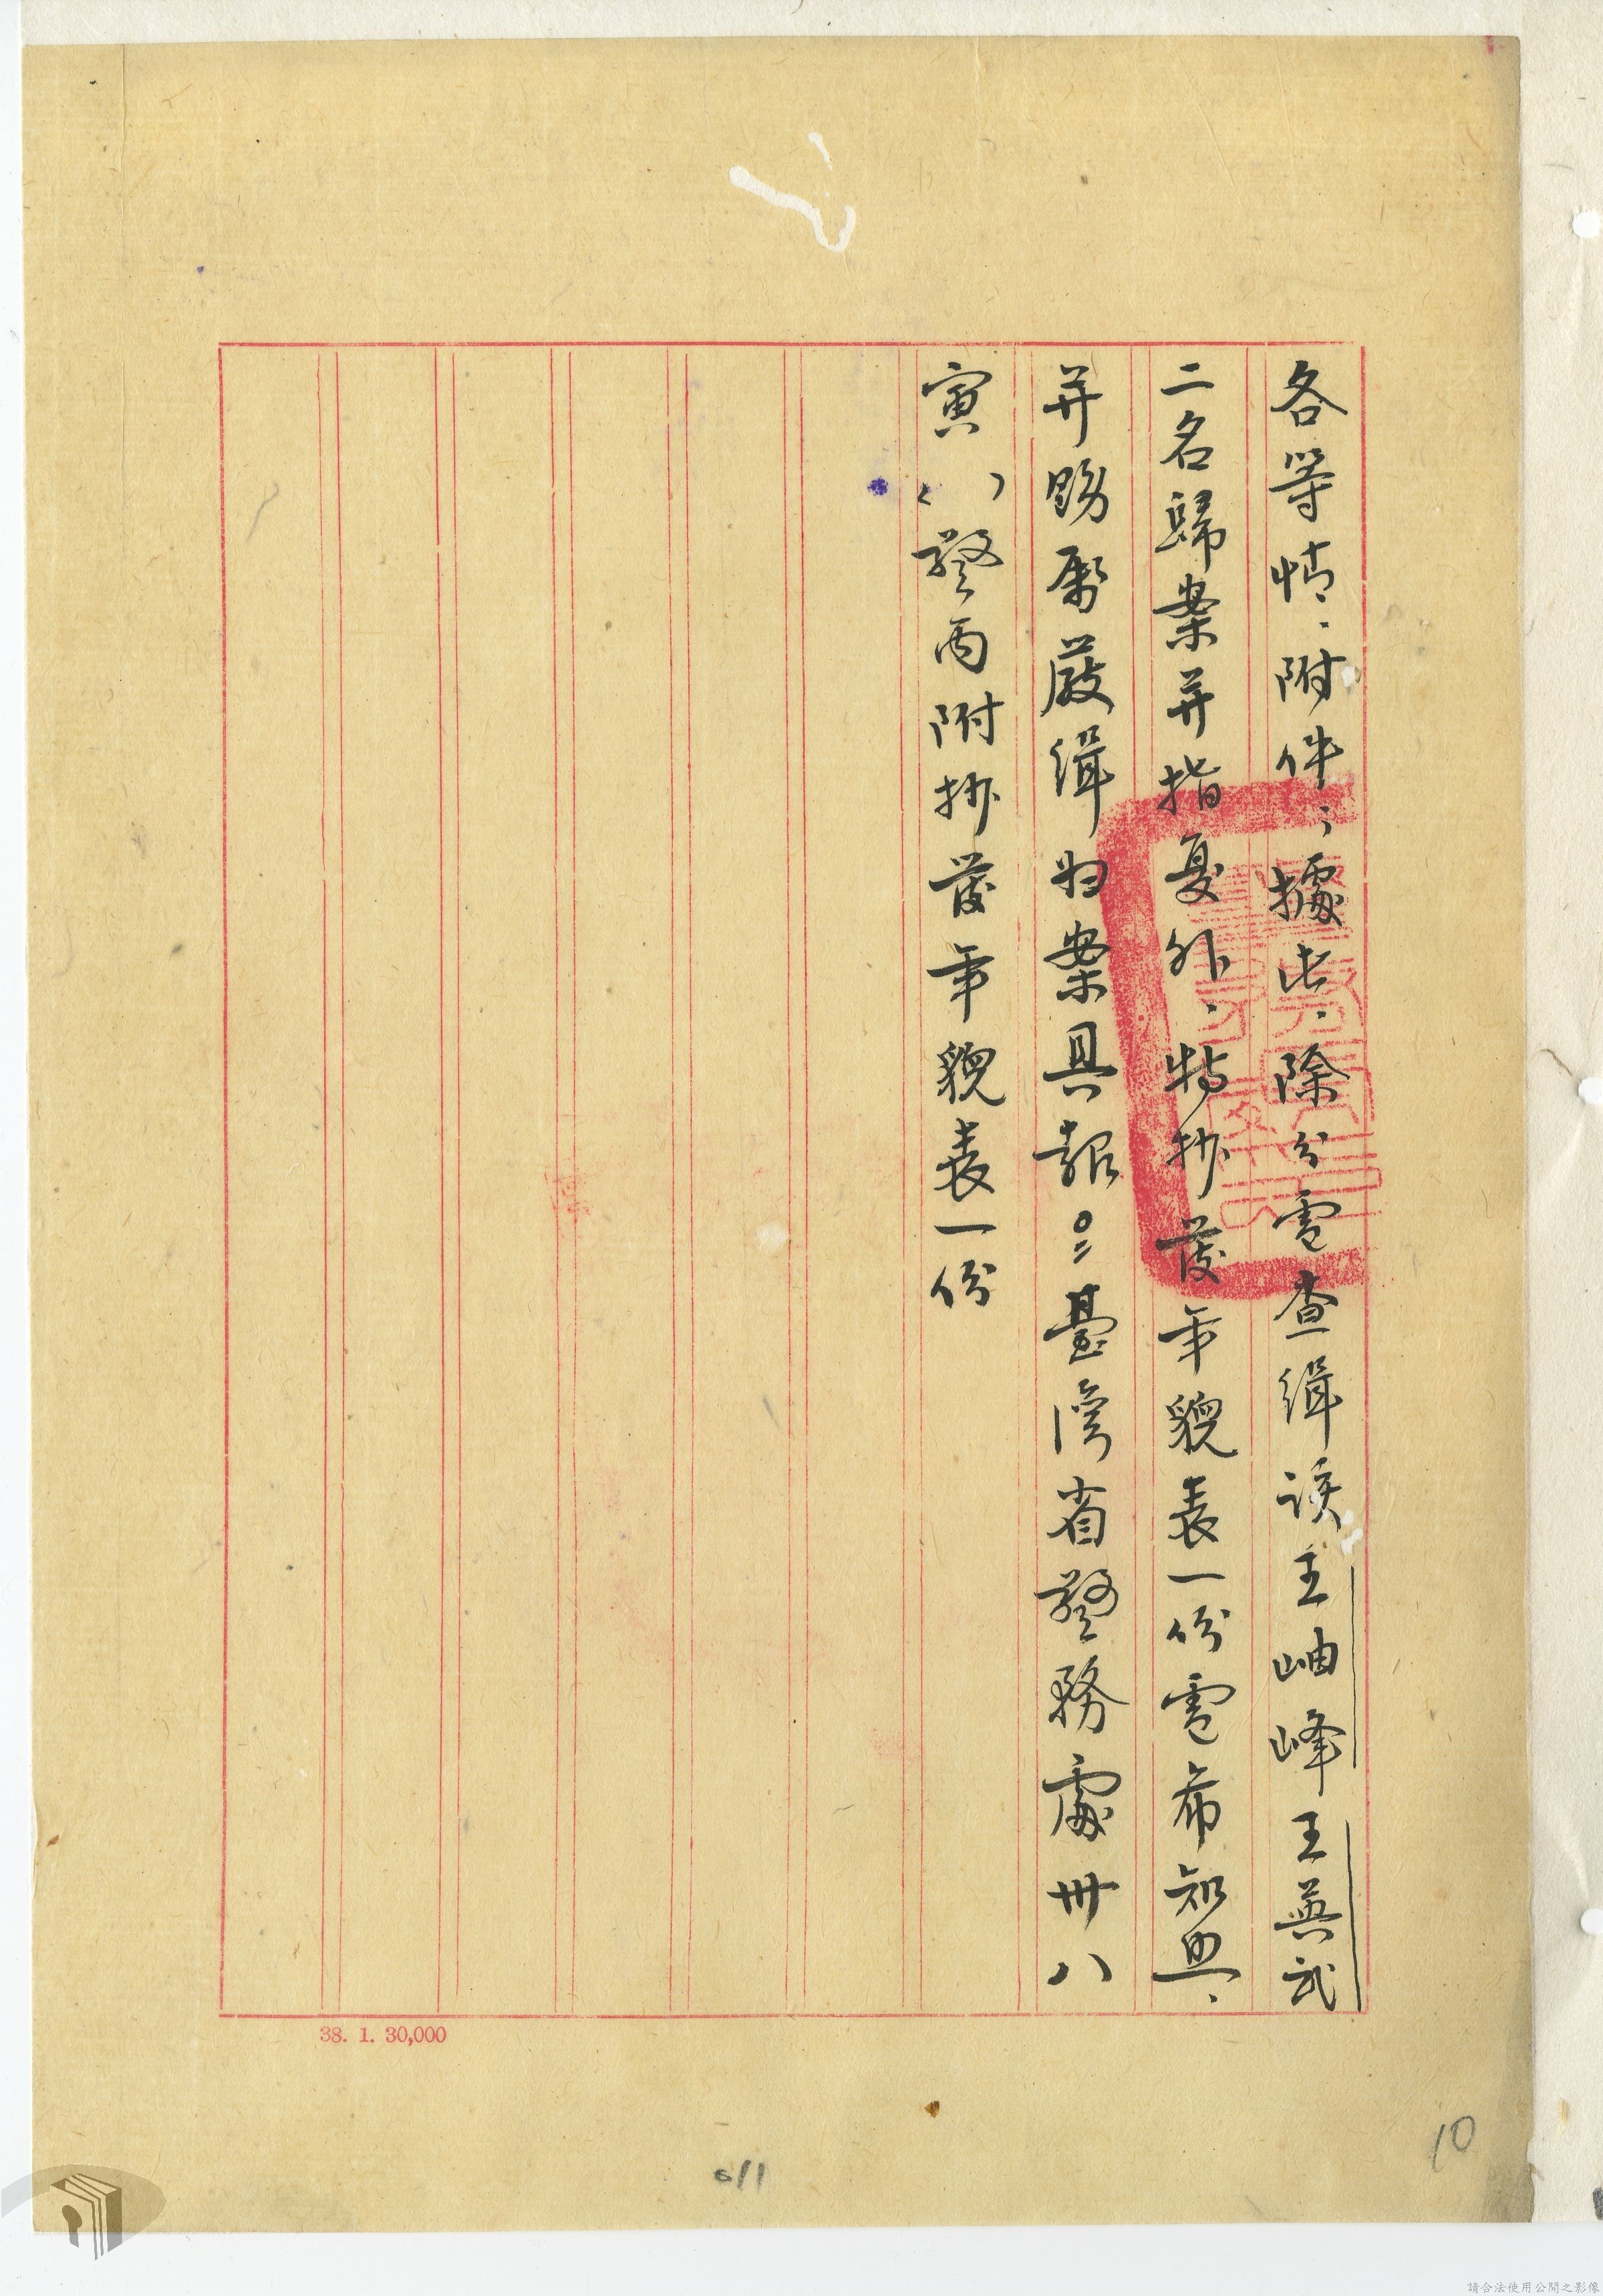 各等情、附件；據此、除分電查緝該王岫峰王英武
二名歸案并指复外、特抄發年貌表一份電希知照、
并飭屬嚴緝归案具報。臺灣省警務處卅八
寅（ ）警丙附抄發年貌表一份
38. 1. 30,000
10
011
請合法使用公開之影像